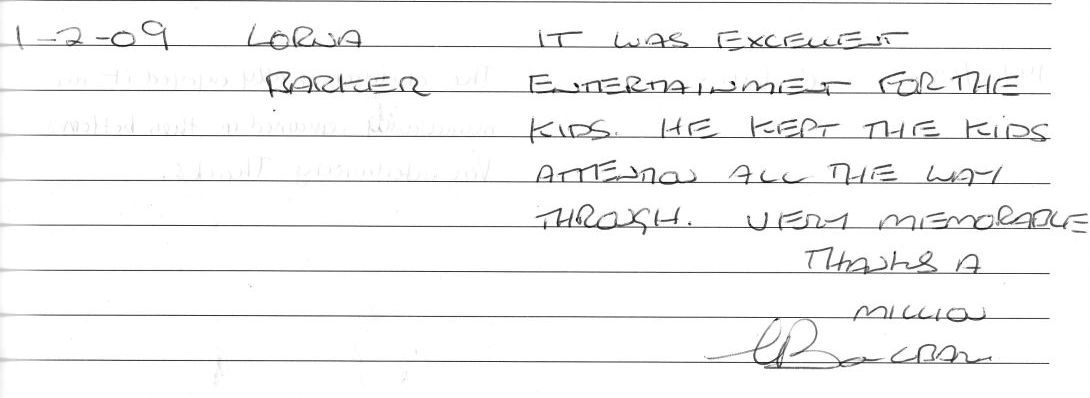 1-2-09 LORNA IT WAS EXCELLENT
BARKER ENTERTAINMENT FOR THE
KIDS. HE KEPT THE KIDS
ATTENTION ALL THE WAY
THROUGH. VERY MEMORABLE
THANKS A
MILLION